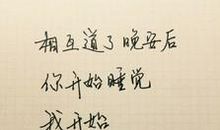 相互道了晚安后
你开始睡觉
我开始